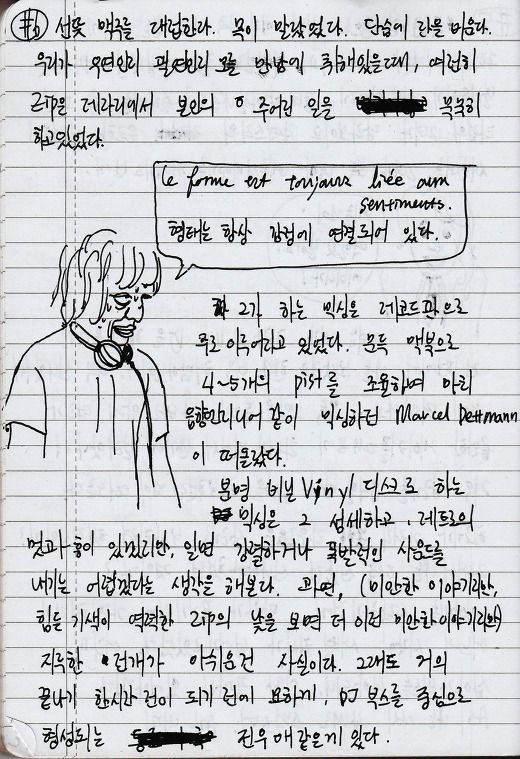 #6 선뜻 맥주를 대접한다. 목이 말랐었다. 단숨에 잔을 비운다.
우리가 우연인지 필연인지 모를 만남에 취해있을때, 여전히
Zip은 테라리에서 본인의 주어진 일을 묵묵히
하고있었다.
le forme est toujours liée aum
sentiments.
형태는 항상 감정에 연결되어 있다.
그가 하는 믹싱은 레코드판으로
주로 이루어지고 있었다. 문득 맥북으로
4~5개의 pist를 조율하며 마치
음향엔지니어 같이 믹싱하던 Marcel Dettmann
이 떠올랐다.
분명 비닐 Vinyl 디스크로 하는
믹싱은 그 섬세하고, 레트로의
멋과 흥이 있겠지만, 일면 강렬하거나 폭발적인 사운드를
내기는 어렵겠다는 생각을 해본다. 과연, (미안한 이야기지만,
힘든 기색이 역력한 Zip의 낯을 보면 더 이런 미안한이야기지만)
지루한 전개가 아쉬운건 사실이다. 그래도 거의
끝나기 한시간 전이 되기 전에 묘하게, DJ 부스를 중심으로
형성되는 전우애같은게 있다.